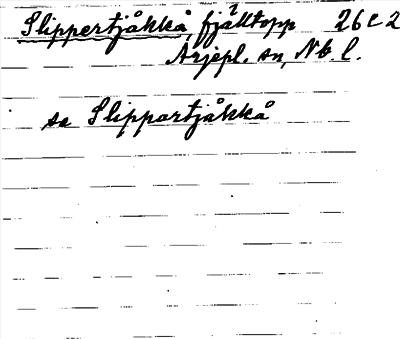 Slippertjåkkå, fjälltopp 26 C 2
Arjepl. sn, Nb. l.
se Slippartjåkkå